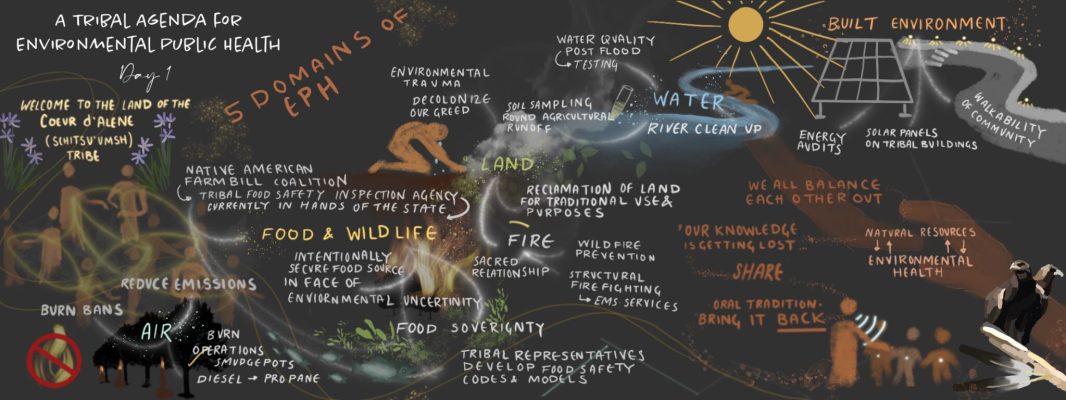 A TRIBAL AGENDA FOR
ENVIRONMENTAL PUBLIC HEALTH
Day 1
WELCOME TO THE LAND OF THE
COEUR D'ALENE
(SCHITSU'UMSH)
TRIBE
5 DOMAINS OF
EPH
ENVIRONMENTAL
TRAUMA
DECOLONIZE
OUR GREED
WATER QUALITY
POST FLOOD
TESTING
SOIL SAMPLING
ROUND AGRICULTURAL
RUNOFF
WATER
RIVER CLEAN UP
BUILT ENVIRONMENT
WALKABILITY
OF COMMUNITY
ENERGY
AUDITS
SOLAR PANELS
ON TRIBAL BUILDINGS
LAND
RECLAMATION OF LAND
FOR TRADITIONAL USE &
PURPOSES
NATIVE AMERICAN
FARM BILL COALITION
TRIBAL FOOD SAFETY INSPECTION AGENCY
CURRENTLY IN HANDS OF THE STATE
FOOD & WILDLIFE
INTENTIONALLY
SECURE FOOD SOURCE
IN FACE OF
ENVIORNMENTAL UNCERTINITY
FOOD SOVERIGNTY
TRIBAL REPRESENTATIVES
DEVELOP FOOD SAFETY
CODES & MODELS
FIRE
SACRED
RELATIONSHIP
WILDFIRE
PREVENTION
STRUCTURAL
FIRE FIGHTING
EMS SERVICES
REDUCE EMISSIONS
BURN BANS
AIR
BURN
OPERATIONS
SMUDGEPOTS
DIESEL → PROPANE
WE ALL BALANCE
EACH OTHER OUT
'OUR KNOWLEDGE
IS GETTING LOST...
SHARE
ORAL TRADITION.
BRING IT BACK
NATURAL RESOURCES
ENVIRONMENTAL
HEALTH